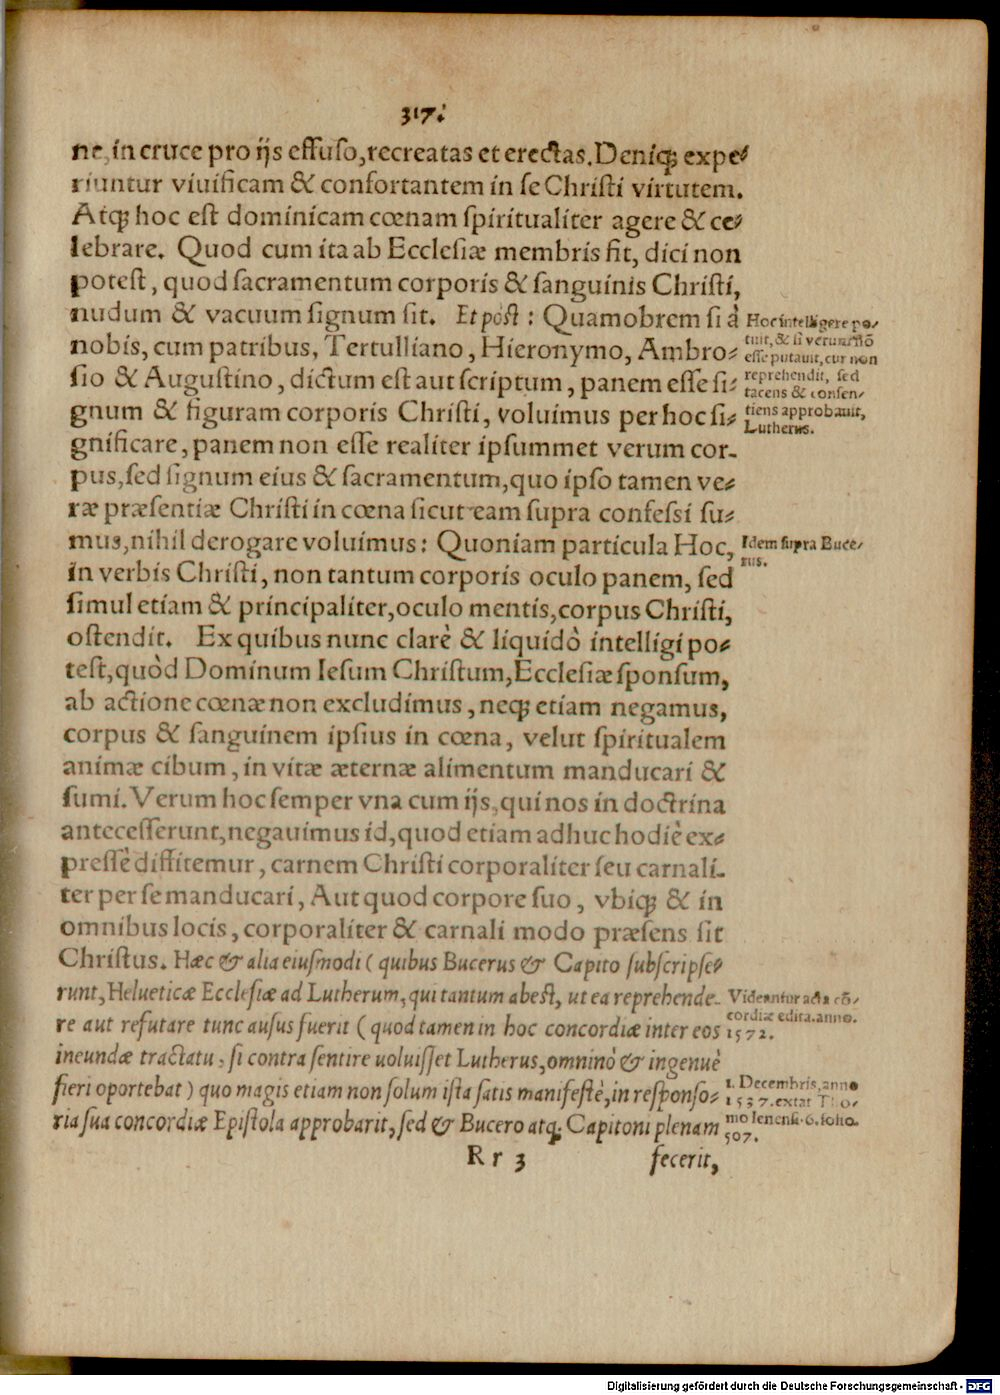 317.
ne, in cruce pro ijs effuso, recreatas et erectas. Deniqꝫ expe⸗
riuntur viuificam & confortantem in se Christi virtutem.
Atqꝫ hoc est dominicam cœnam spiritualiter agere & ce⸗
lebrare. Quod cum ita ab Ecclesiæ membris fit, dici non
potest, quod sacramentum corporis & sanguinis Christi,
nudum & vacuum signum sit. Et pòst: Quamobrem si à
nobis, cum patribus, Tertulliano, Hieronymo, Ambro⸗
sio & Augustino, dictum est aut scriptum, panem esse si⸗
gnum & figuram corporis Christi, voluimus per hoc si⸗
gnificare, panem non esse realiter ipsummet verum cor-
pus, sed signum eius & sacramentum, quo ipso tamen ve⸗
ræ præsentiæ Christi in cœna sicut eam supra confessi su⸗
mus, nihil derogare voluimus: Quoniam particula Hoc,
in verbis Christi, non tantum corporis oculo panem, sed
simul etiam & principaliter, oculo mentis, corpus Christi,
ostendit. Ex quibus nunc clarè & liquidò intelligi po⸗
test, quòd Dominum Iesum Christum, Ecclesiæ sponsum,
ab actione cœnæ non excludimus, neqꝫ etiam negamus,
corpus & sanguinem ipsius in cœna, velut spiritualem
animæ cibum, in vitæ æternæ alimentum manducari &
sumi. Verum hoc semper vna cum ijs, qui nos in doctrina
antecesserunt, negauimus id, quod etiam adhuc hodiè ex⸗
pressè diffitemur, carnem Christi corporaliter seu carnali-
ter per se manducari, Aut quod corpore suo, vbiqꝫ & in
omnibus locis, corporaliter & carnali modo præsens sit
Christus. Hæc & alia eiusmodi (quibus Bucerus & Capito subscripse⸗
runt, Helueticæ Ecclesiæ ad Lutherum, qui tantum abest, ut ea reprehende-
re aut refutare tunc ausus fuerit (quod tamen in hoc concordiæ inter eos
ineundæ tractatu, si contra sentire uoluisset Lutherus, omninò & ingenuè
fieri oportebat) quo magis etiam non solum ista satis manifestè, in responso⸗
ria sua concordiæ Epistola approbarit, sed & Bucero atqꝫ Capitoni plenam
Rr 3
fecerit,
Hoc intelligere po⸗
tuit, & si verum nō
esse putauit, cur non
reprehendit, sed
tacens & consen⸗
tiens approbauit,
Lutherus.
Idem supra Buce⸗
rus.
Videantur acta cō⸗
cordiæ edita. anno.
1572.
1. Decembris, anno
1537. extat Tho⸗
mo Ienensi. 6. folio.
507.
Digitalisierung gefördert durch die Deutsche Forschungsgemeinschaft - DFG